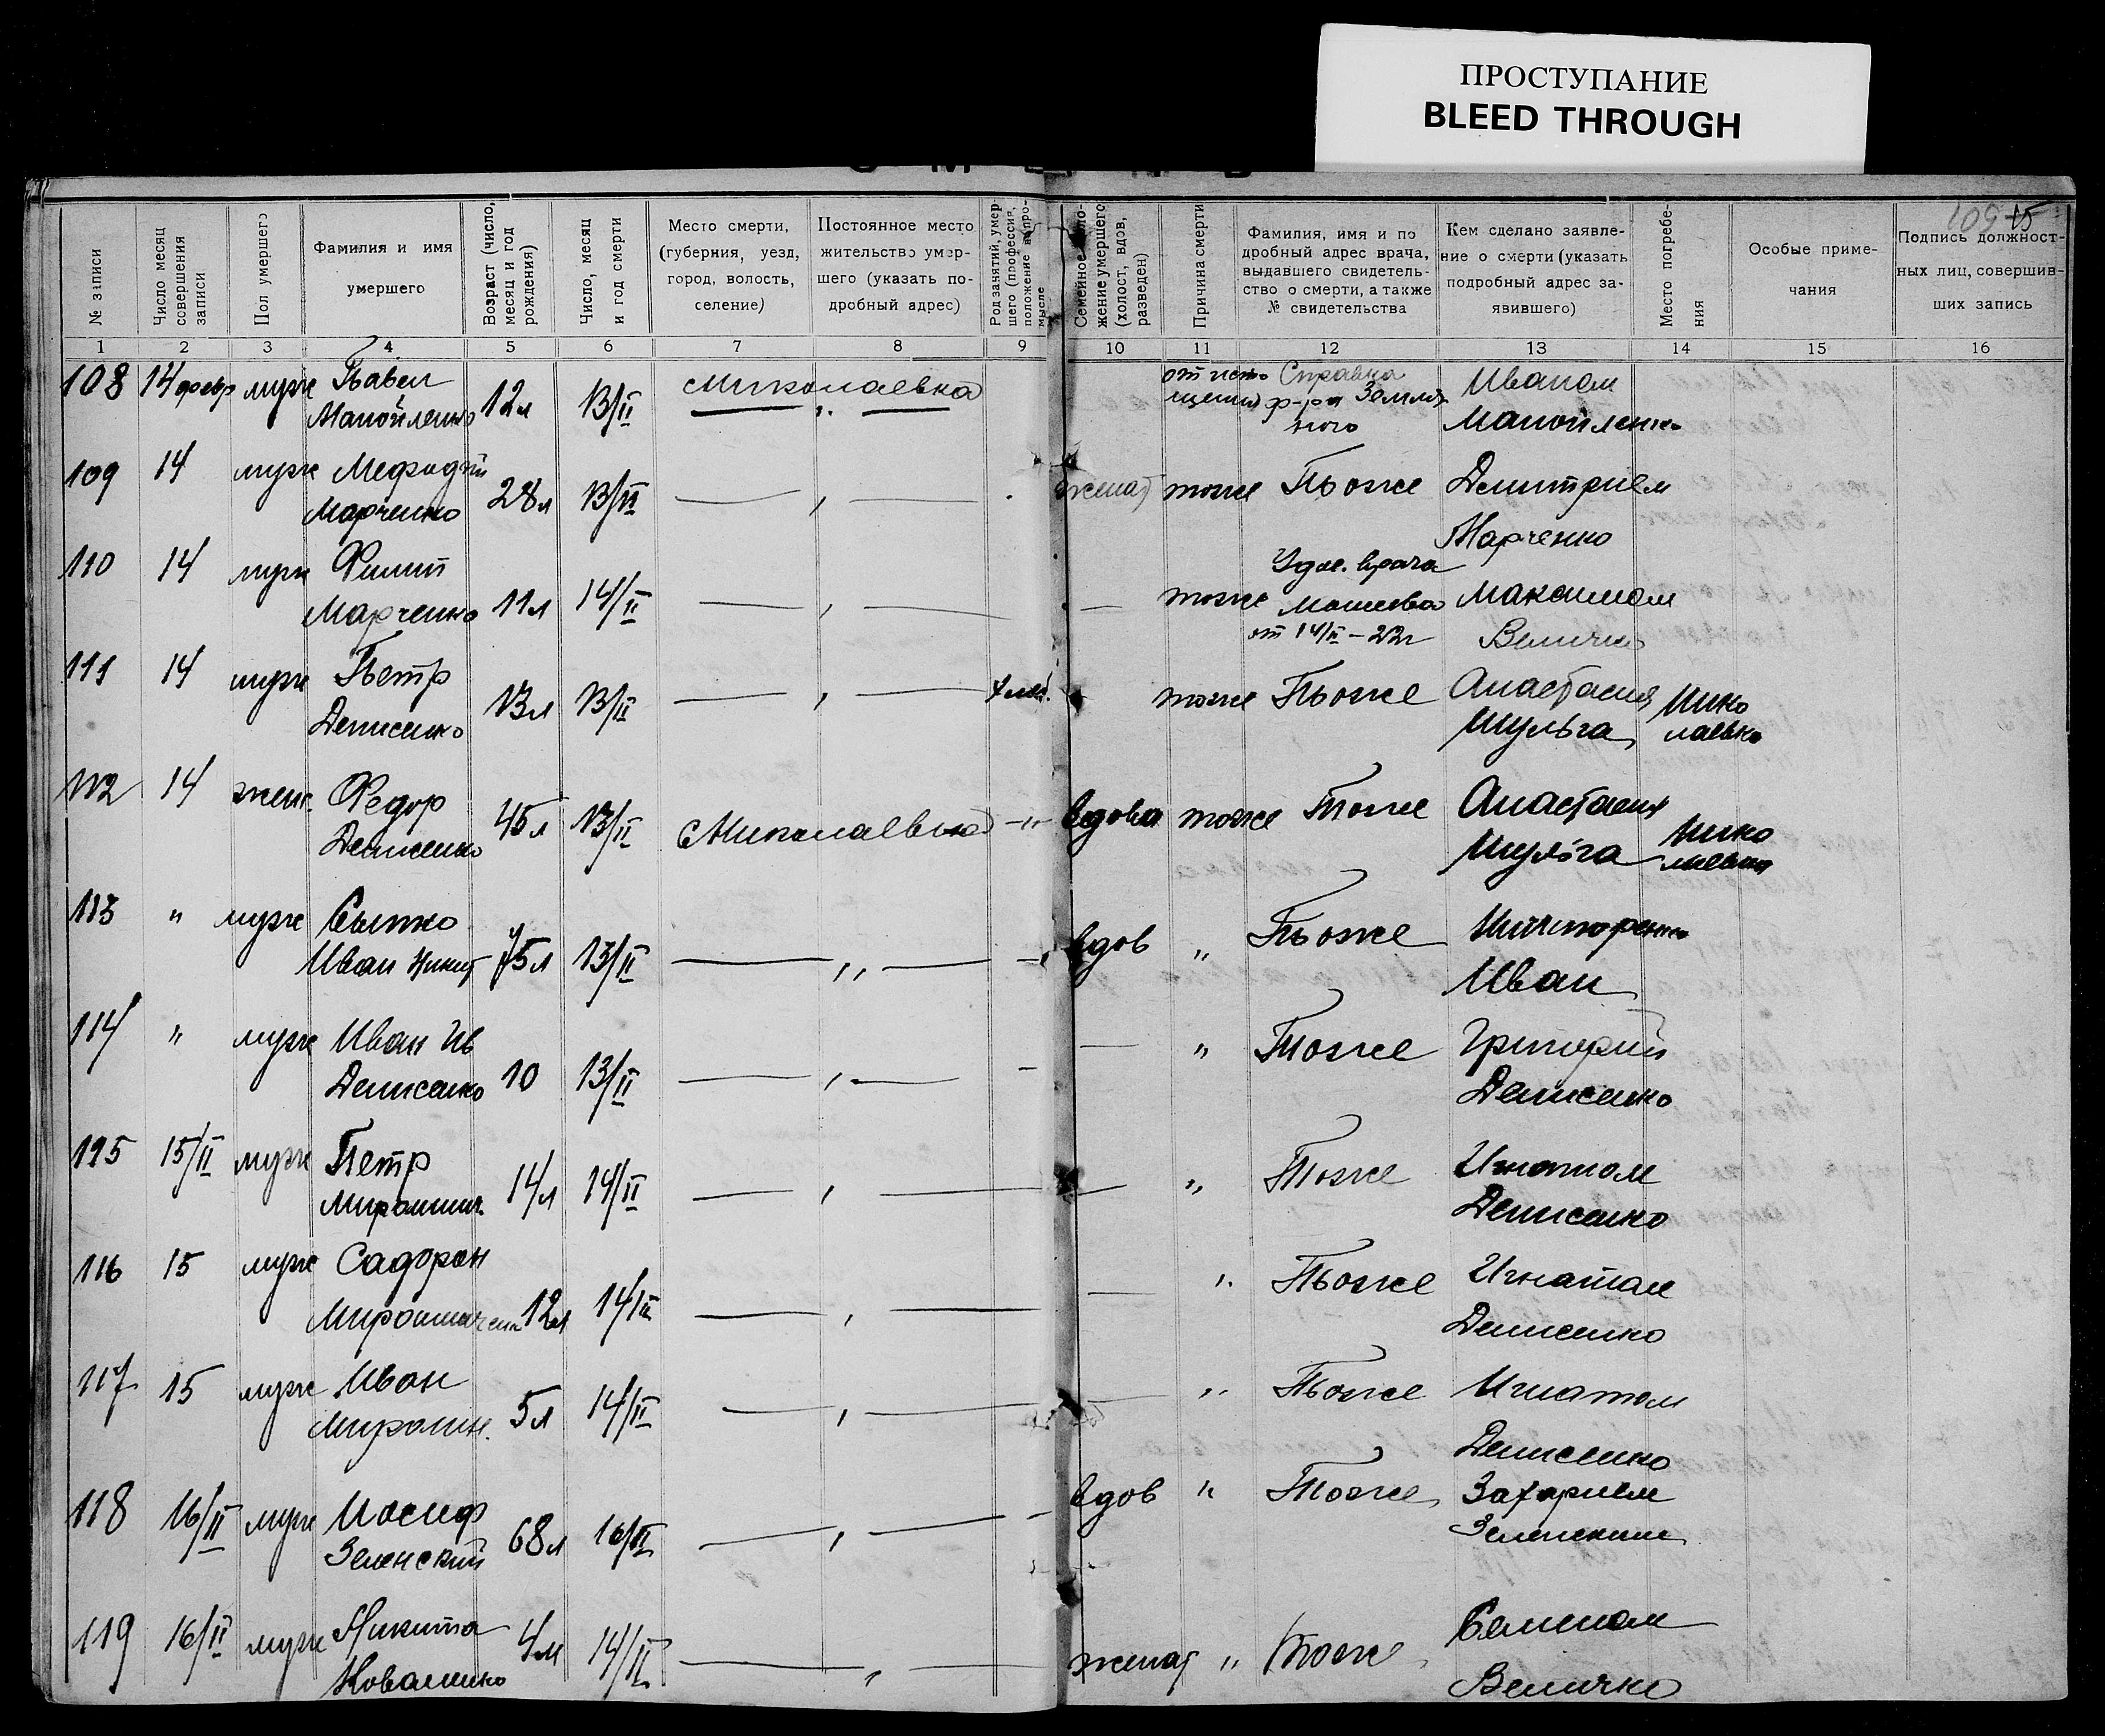 ПРОСТУПАНИЕ
BLEED THROUGH
109 15
№ записи
Число месяц совершения записи
Пол умершего
Фамилия и имя умершего
Возраст (число, месяц и год рождения)
Число, месяц и год смерти
Место смерти, (губерния, уезд, город, волость, селение)
Постоянное место жительство умершего (указать подробный адрес)
Род занятий, умершего (профессия, положение в промысле
Семейное положение умершего (холост, вдов, разведен)
Причина смерти
Фамилия, имя и подробный адрес врача, выдавшего свидетельство о смерти, а также № свидетельства
Кем сделано заявление о смерти (указать подробный адрес заявившего)
Место погребения
Особые примечания
Подпись должностных лиц, совершивших запись
1 2 3 4 5 6 7 8 9 10 11 12 13 14 15 16
108 14 февр муж Павел Манойленко 12л 13/II Миколаевка от истощения Справка ф-ра Земляного Иваном Манойленко
109 14 муж Мефодий Марченко 28л 13/II — „ — женат тоже Тоже Дмитрием Марченко
110 14 муж Филип Марченко 11л 14/II — „ — — тоже Удос. врача от 14/II – 22г Максимом Величко
111 14 муж Петр Денисенко 13л 13/II — „ — тоже Тоже Анастасия Шульга Нико лаевка
112 14 жен. Федор Денисенко 45л 13/II Миколаевка –„– вдова тоже Тоже Анастасия Шульга Нико лаевка
113 „ муж Сытко Иван Никит 75л 13/II — „ — вдов „ Тоже Иван
114 „ муж Иван Ив Денисенко 10 13/II — „ — – — „ Тоже Григорий Денисенко
115 15/II муж Петр Мирошнич. 14л 14/II — „ — — „ Тоже Игнатом Денисенко
116 15 муж Садорон Мирошничен 12л 14/II — „ — — „ Тоже Игнатом Денисенко
117 15 муж Иван Мирошн. 5л 14/II — „ — — „ Тоже Игнатом Денисенко
118 16/II муж Иосиф Зеленский 68л 16/II — „ — – вдов „ Тоже Захарием Зеленским
119 16/II муж Никита Коваленко 14/II — „ — женат „ Тоже Семеном Величко